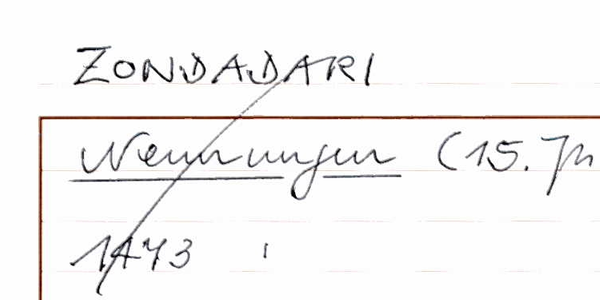 ZONDADARI
Nennungen (15. Jh
1473